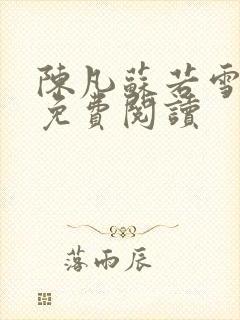 陳凡蘇若雪
免費閱讀
落雨辰